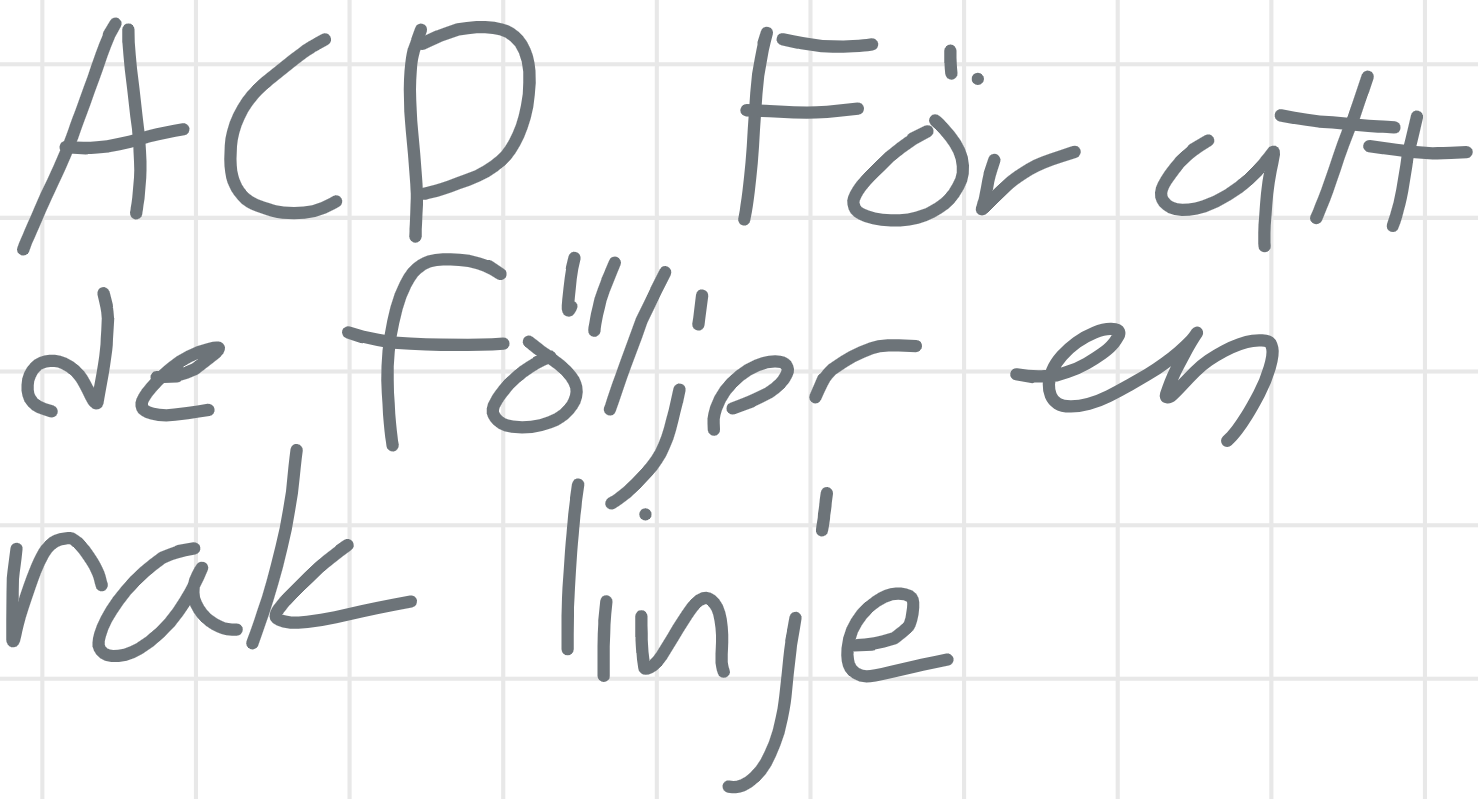 ACD För att
de följer en
rak linje